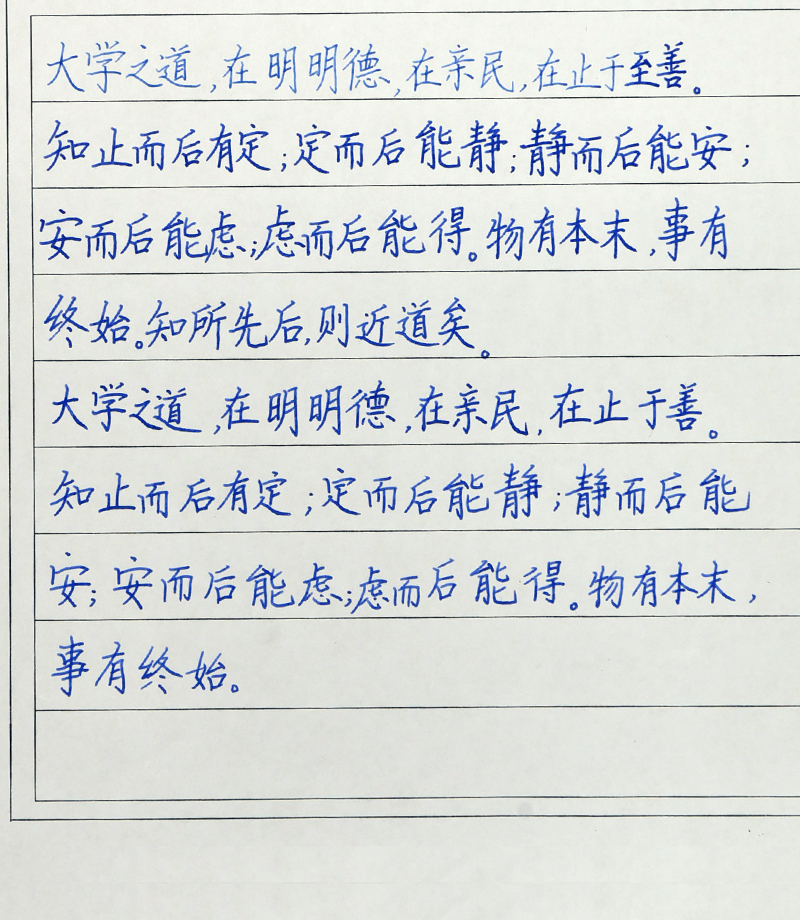 大学之道,在明明德,在亲民,在止于至善。
知止而后有定;定而后能静;静而后能安;
安而后能虑;虑而后能得。物有本末,事有
终始。知所先后,则近道矣。
大学之道,在明明德,在亲民,在止于善。
知止而后有定;定而后能静;静而后能
安;安而后能虑;虑而后能得。物有本末,
事有终始。